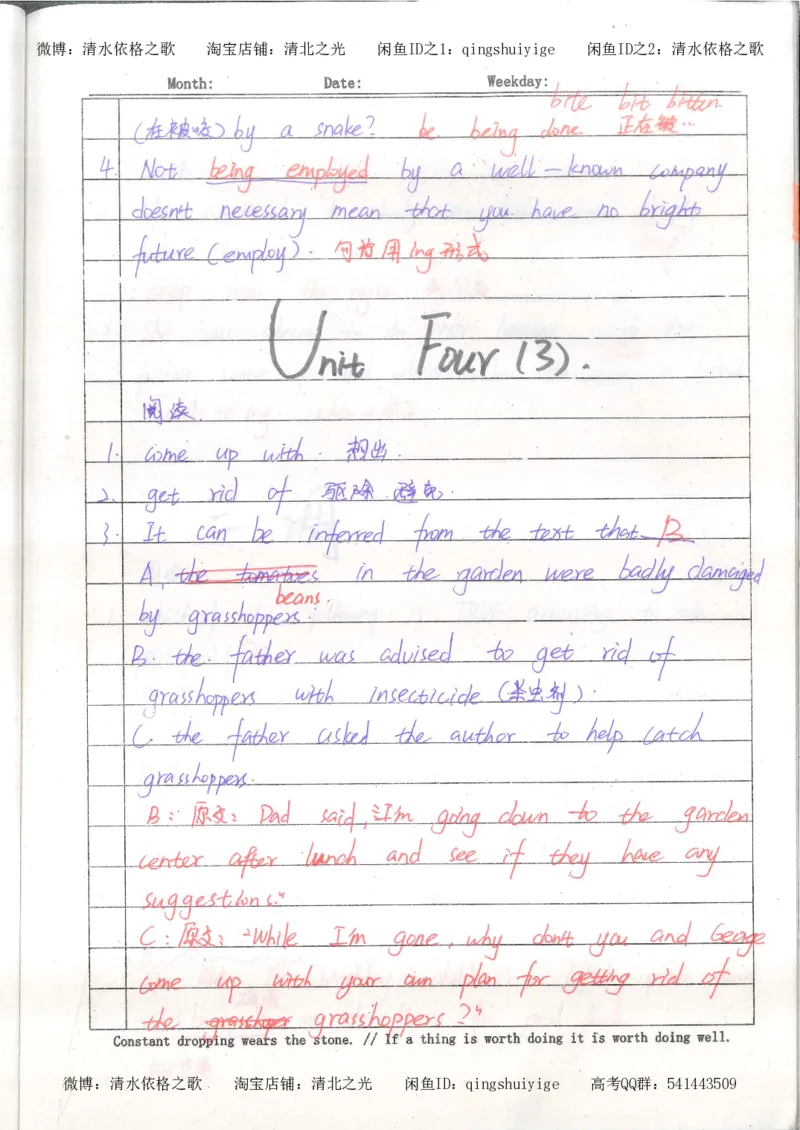 微博：清水依格之歌 淘宝店铺：清北之光 闲鱼ID之1：qingshuiyige 闲鱼ID之2：清水依格之歌
Month: Date: Weekday:
bite bit bitten.
(在被咬) by a snake? be being done 正在被…
4. Not being employed by a well-known company
doesn't necessary mean that you have no bright
future (employ). 句首用ing形式
Unit Four (3).
阅读
1. come up with. 想出.
2. get rid of 驱除 避免.
3. It can be inferred from the text that B
A, the tomatoes in the garden were badly damaged
beans.
by grasshoppers.
B. the father was advised to get rid of
grasshoppers with insecticide (杀虫剂).
C. the father asked the author to help catch
grasshoppers.
B: 原文: Dad said, "I'm going down to the garden
center after lunch and see if they have any
suggestions."
C: 原文: "While I'm gone, why don't you and George
come up with your own plan for getting rid of
the grasshoper grasshoppers?"
Constant dropping wears the stone. // If a thing is worth doing it is worth doing well.
微博：清水依格之歌 淘宝店铺：清北之光 闲鱼ID：qingshuiyige 高考QQ群：541443509